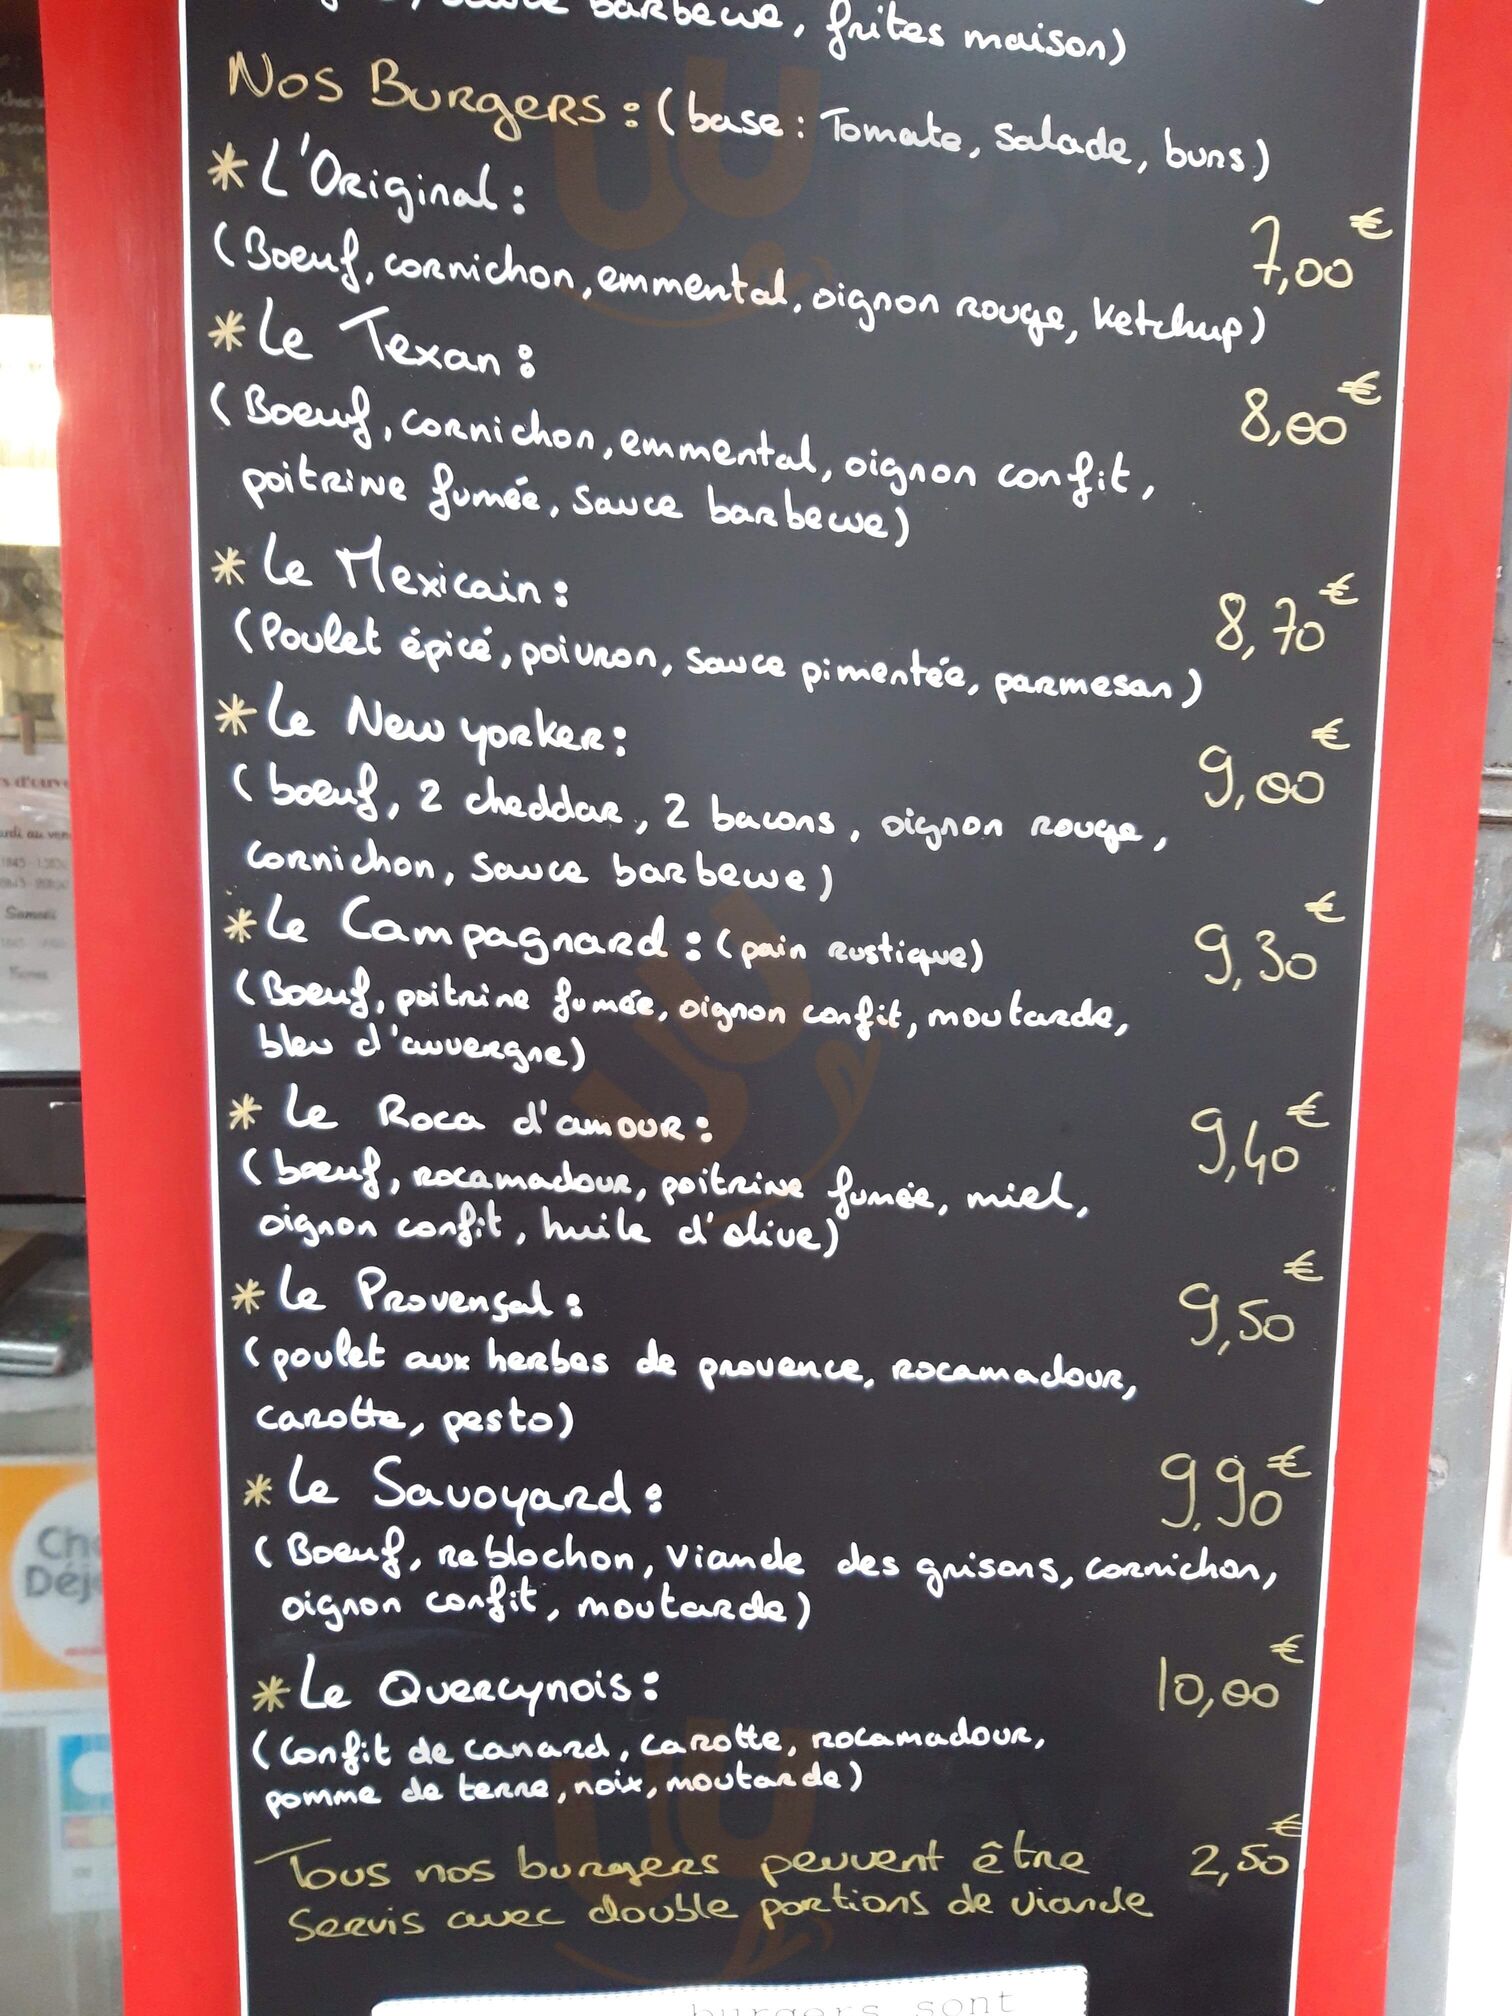 sauce barbecue, frites maison)
Nos Burgers : (base : Tomate, Salade, buns)
* L'Original :
7,00€
(Boeuf, cornichon, emmental, oignon rouge, ketchup)
* Le Texan :
8,00€
(Boeuf, cornichon, emmental, oignon confit,
poitrine fumée, sauce barbecue)
* Le Mexicain :
8,70€
(Poulet épicé, poivron, sauce pimentée, parmesan)
* Le New yorker :
9,00€
(boeuf, 2 cheddar, 2 bacons, oignon rouge,
cornichon, sauce barbecue)
* Le Campagnard : (pain rustique)
9,30€
(Boeuf, poitrine fumée, oignon confit, moutarde,
bleu d'auvergne)
* Le Roca d'amour :
9,40€
(boeuf, rocamadour, poitrine fumée, miel,
oignon confit, huile d'olive)
* Le Provençal :
9,50€
(poulet aux herbes de provence, rocamadour,
carotte, pesto)
* Le Savoyard :
9,90€
(Boeuf, reblochon, viande des grisons, cornichon,
oignon confit, moutarde)
* Le Quercynois :
10,00€
(Confit de canard, carotte, rocamadour,
pomme de terre, noix, moutarde)
Tous nos burgers peuvent être 2,50€
servis avec double portions de viande
burgers sont
Samedi